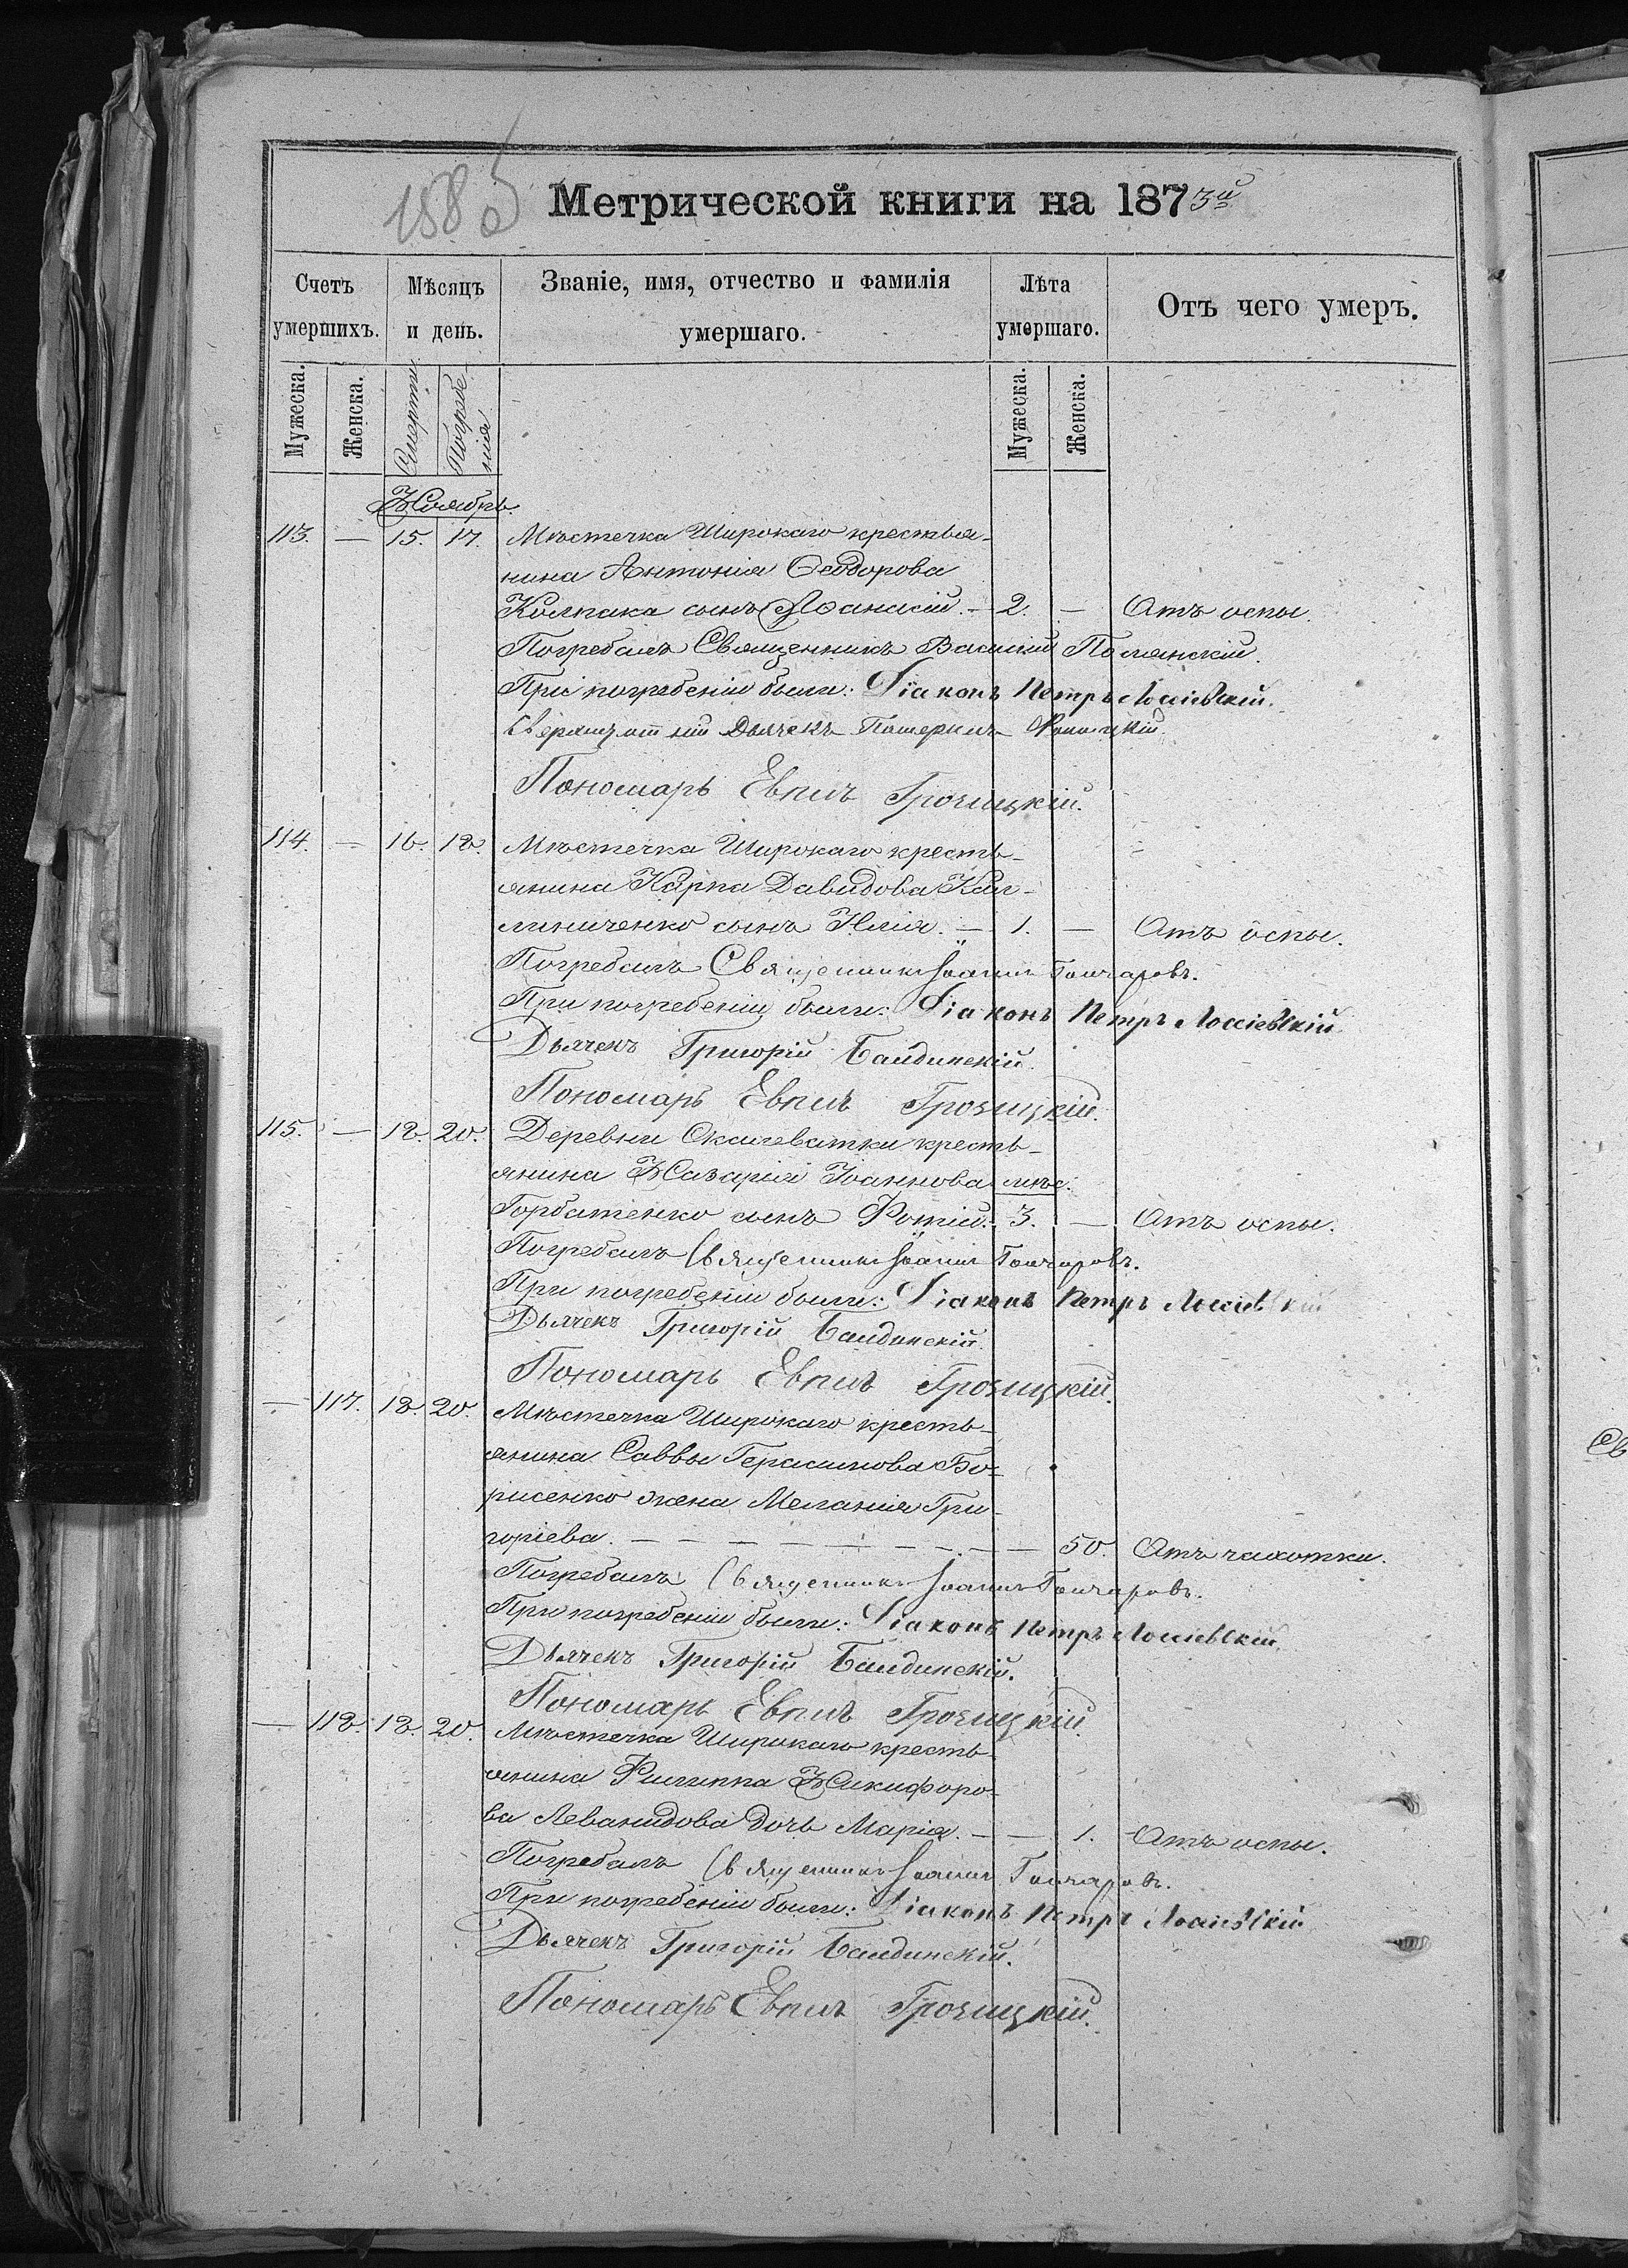 1585
Метрической книги на 1873й
Счетъ умершихъ.
Мѣсяцъ и день.
Званіе, имя, отчество и фамилія умершаго.
Лѣта умершаго.
Отъ чего умеръ.
Мужеска. Женска. Смерти Погребенія Мужеска. Женска.
Ноябрь.
113. — 15. 17. Мѣстечка Широкаго крестья-
нина Антонія Ѳеодорова
Колпака сынъ Аѳанасій. — 2. — Отъ оспы.
Погребалъ Священникъ Василій Полянскій.
При погребеніи были: Діаконъ Петръ Лоссіевскій.
Сверхштатній Дьячекъ
Пономарь Евплъ Грозицкій.
114. — 16. 18. Мѣстечка Широкаго кресть-
янина Карпа Давидова Кал-
линиченко сынъ Илія. — 1. — Отъ оспы.
Погребалъ Священникъ Іоаннъ Гончаровъ.
При погребеніи были: Діаконъ Петръ Лоссіевскій
Дьячекъ Григорій Балдинскій.
Пономарь Евплъ Грозицкій.
115. — 18. 20. Деревни Оксиневатки кресть-
янина Назарія Іоаннова мѣс.
Горбатенко сынъ Фотій. 3. — Отъ оспы.
Погребалъ Священникъ Іоаннъ Гончаровъ.
При погребеніи были: Діаконъ Петръ Лоссіевскій
Дьячекъ Григорій Балдинскій.
Пономарь Евплъ Грозицкій.
— 117. 18. 20. Мѣстечка Широкаго кресть-
янина Саввы Герасимова Бо-
рисенко жена Меланія Гри-
горіева. — — 50. Отъ чахотки.
Погребалъ Священникъ Іоаннъ Гончаровъ.
При погребеніи были: Діаконъ Петръ Лоссіевскій
Дьячекъ Григорій Балдинскій.
Пономарь Евплъ Грозицкій.
— 118. 18. 20. Мѣстечка Широкаго кресть-
янина Филиппа Никифоро-
ва Леванидова дочь Марія. — — 1. Отъ оспы.
Погребалъ Священникъ Іоаннъ Гончаровъ.
При погребеніи были: Діаконъ Петръ Лоссіевскій
Дьячекъ Григорій Балдинскій.
Пономарь Евплъ Грозицкій.
Св